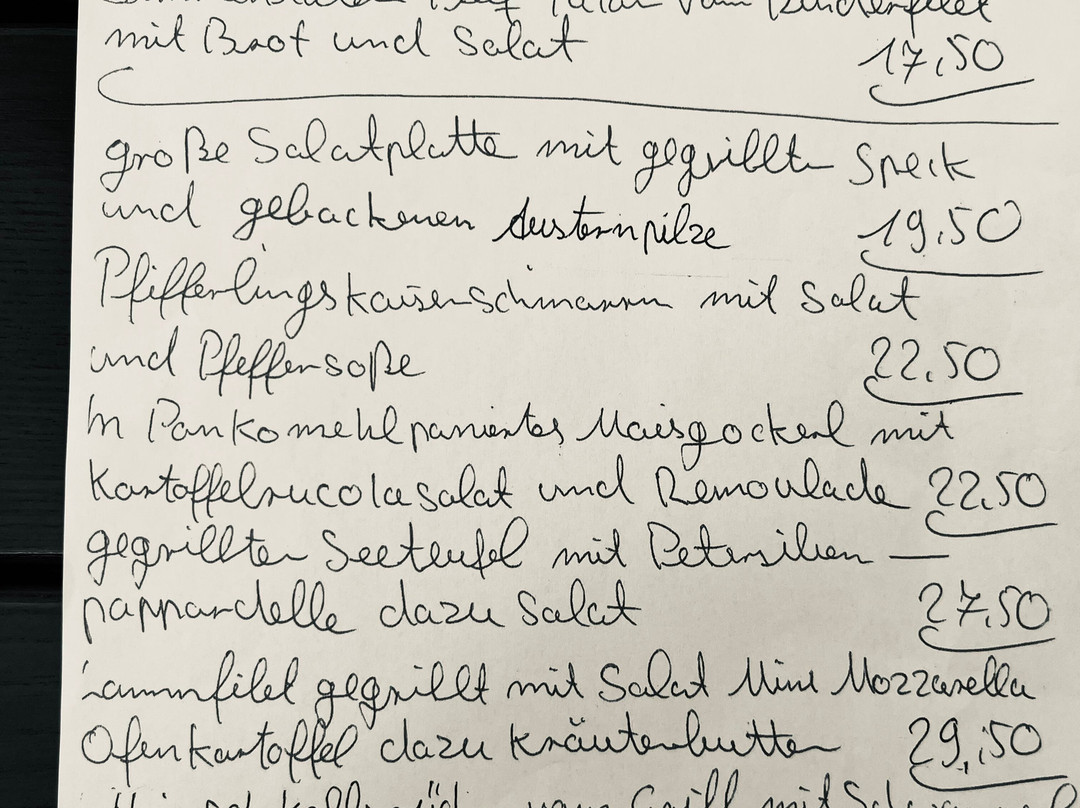 Beef Tatar vom Rinderfilet
mit Brot und Salat 17,50
große Salatplatte mit gegrillten Speck
und gebackenen Austernpilze 19,50
Pfifferlingskaiserschmarrn mit Salat
und Pfeffersoße 22,50
In Pankomehl paniertes Maisgockerl mit
Kartoffelrucolasalat und Remoulade 22,50
gegrillten Seeteufel mit Petersilien –
pappardelle dazu Salat 27,50
Lammfilet gegrillt mit Salat Mini Mozzarella
Ofenkartoffel dazu Kräuterbutter 29,50
vom Grill mit